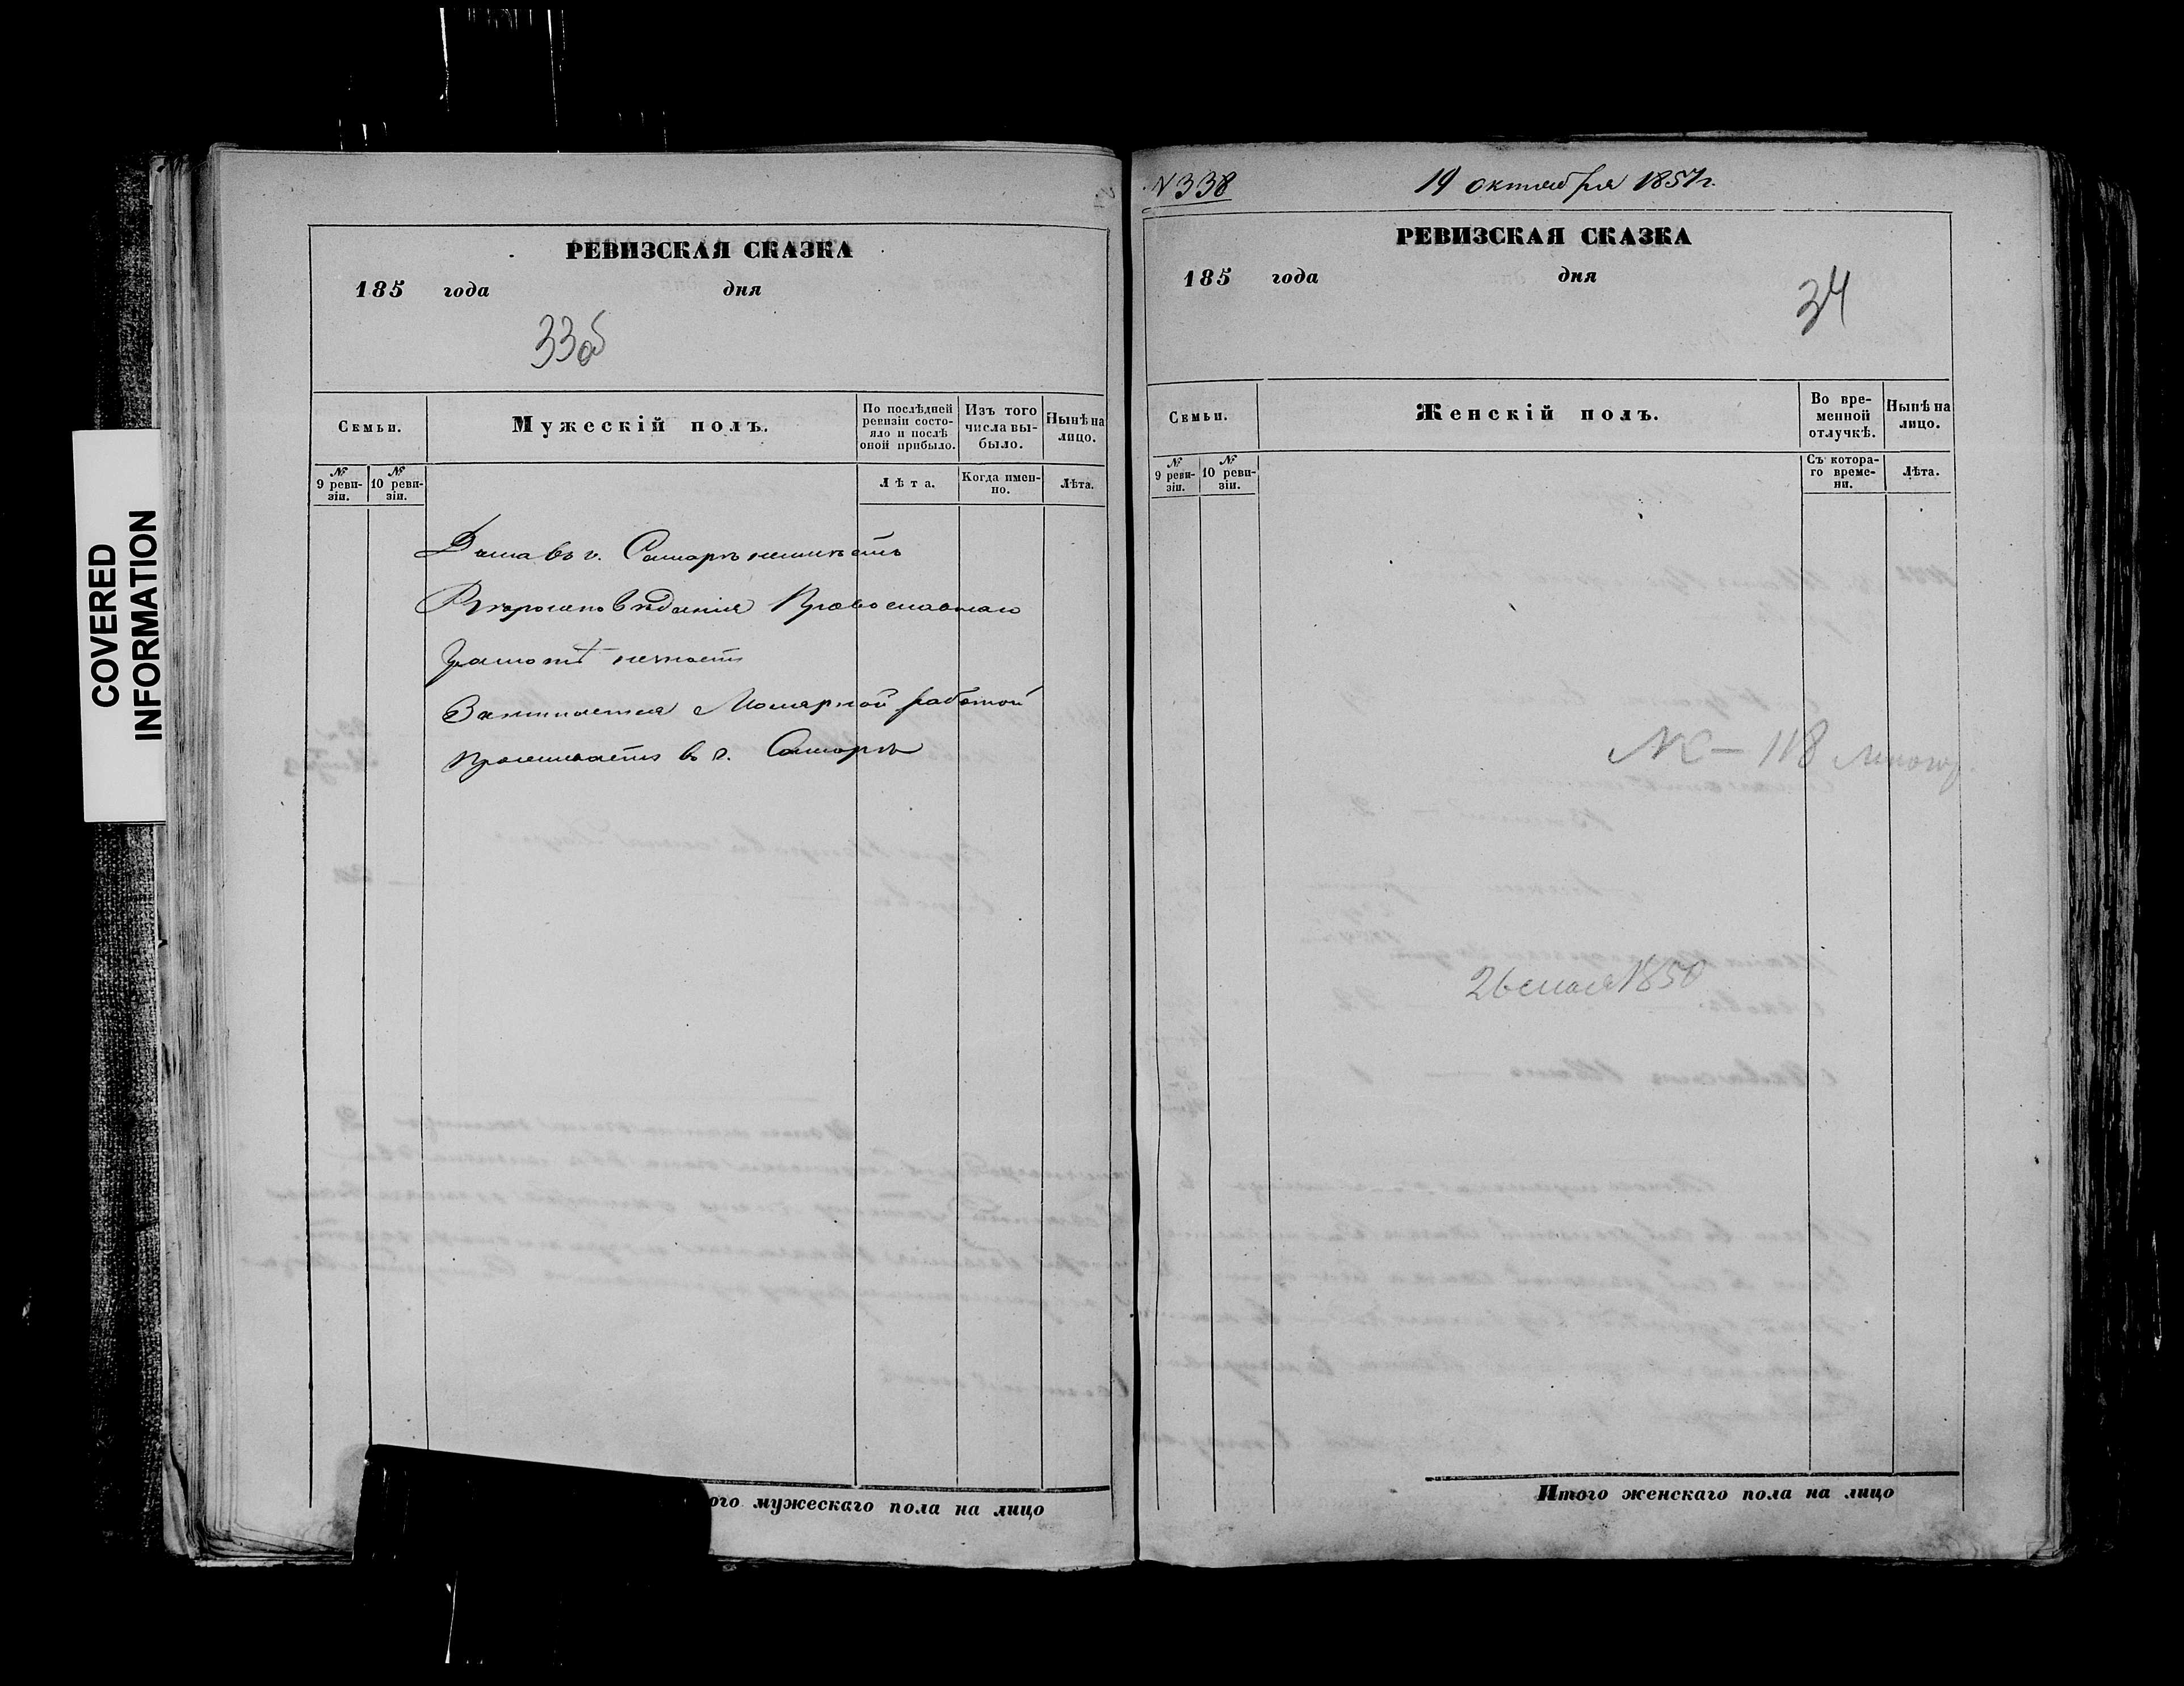 COVERED
INFORMATION
РЕВИЗСКАЯ СКАЗКА
185 года дня
33об
Семьи.
Мужескій полъ.
По послѣдней ревизіи состояло и послѣ оной прибыло.
Изъ того числа выбыло.
Нынѣ на лицо.
№ 9 ревизіи.
№ 10 ревизіи.
Лѣта.
Когда именно.
Лѣта.
Дома въ г. Самарѣ неимѣетъ
Вѣроисповѣданія Православнаго
Грамотѣ незнаетъ
Занимается Молярной работой
Проживаетъ в г. Самарѣ
ого мужескаго пола на лицо
N 338
19 октября 1857 г.
РЕВИЗСКАЯ СКАЗКА
185 года дня
34
Семьи.
Женскій полъ.
Во временной отлучкѣ.
Нынѣ на лицо.
№ 9 ревизіи.
№ 10 ревизіи.
Съ котораго времени.
Лѣта.
118
26 мая 1850
Итого женскаго пола на лицо